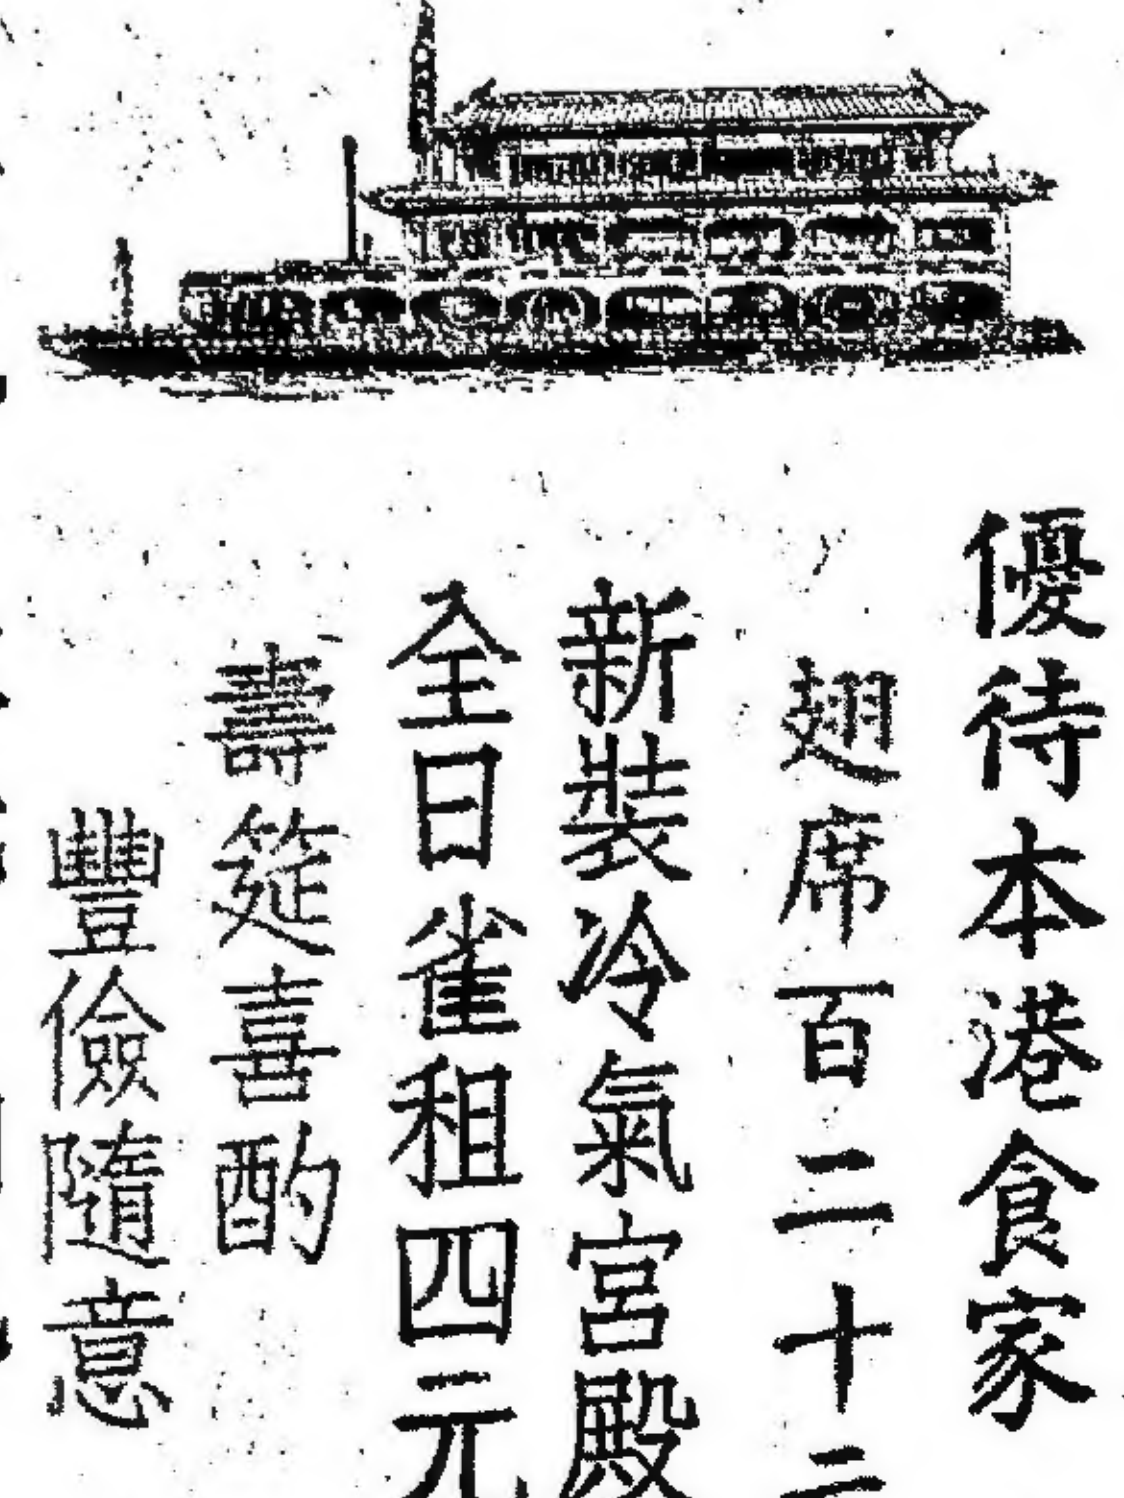 優待本港食家
翅席百二十二
新裝冷氣宮殿
全日雀租四元
壽筵喜酌
豐儉隨意